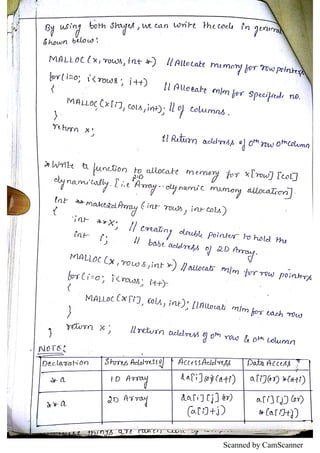 By using both stages, we can write the code in general
shown below:
MALLOC (x, rows, int *) // Allocate memory for row pointers
for(i=0; i<rows; i++) // Allocate m/m for specified no.
{
MALLOC (x[i], cols, int); // of columns.
}
return x;
// Return address of 0th row 0th column
* Write a function to allocate memory for x[row][col]
dynamically. [i.e 2D Array - dynamic memory allocation].
int ** make2dArray (int rows, int cols)
{
int **x; // creating double pointer to hold the
int i; // base address of 2D Array.
MALLOC (x, rows, int *) // allocate m/m for row pointers
for(i=0; i<rows; i++)
{
MALLOC (x[i], cols, int); // Allocate m/m for each row
}
return x; // return address of 0th row & 0th column
}
NOTE:
Declaration Stores Address of Access Address Data Access
*a 1D Array &a[i] (or) (a+i) a[i] (or) *(a+i)
**a 2D Array &a[i][j] (or) a[i][j] (or)
(a[i]+j) *(a[i]+j)
things are taken care of
Scanned by CamScanner